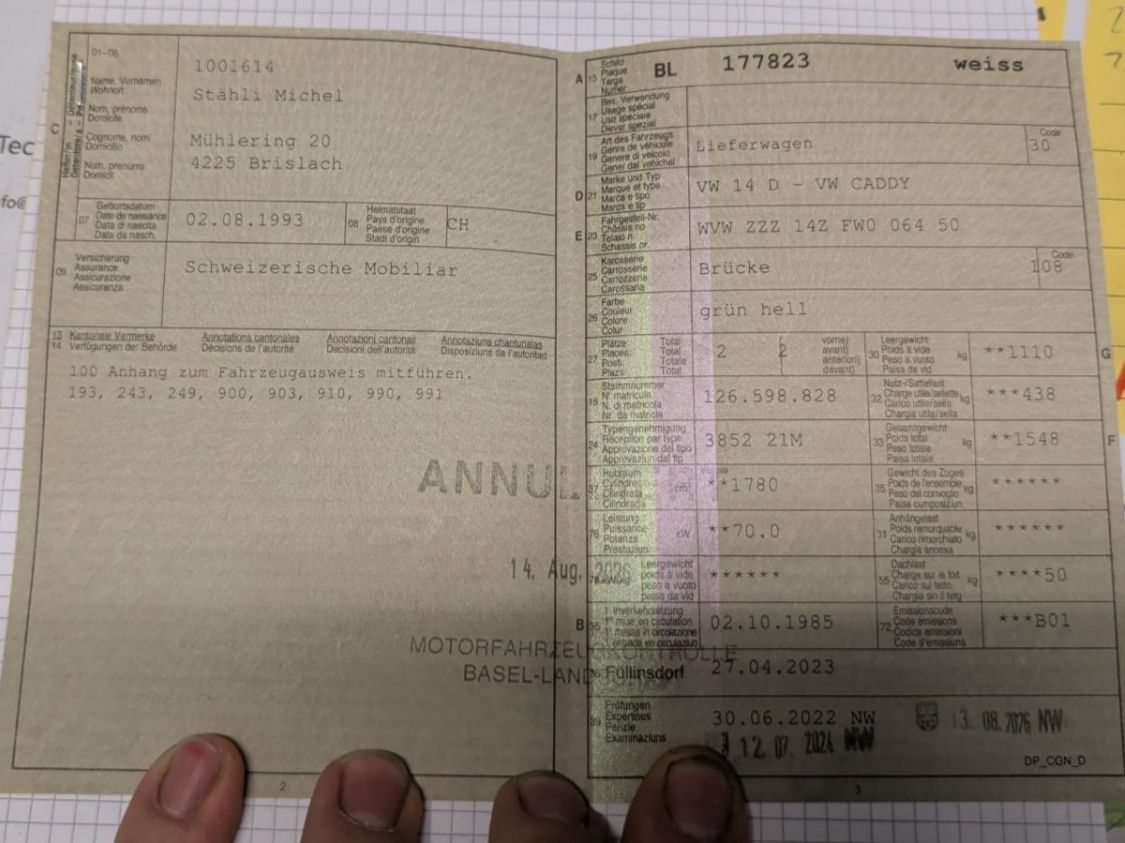 01-06
C
Name, Vornamen
Wohnort
Nom, prénoms
Domicile
Cognome, nomi
Domicilio
Num, prenums
Domicil
1001614
Stähli Michel
Mühlering 20
4225 Brislach
07
Geburtsdatum
Date de naissance
Data di nascita
Data da nasch.
02.08.1993
08
Heimatstaat
Pays d'origine
Paese d'origine
Stadi d'origin
CH
09
Versicherung
Assurance
Assicurazione
Assicuranza
Schweizerische Mobiliar
13 Kantonale Vermerke Annotations cantonales Annotazioni cantonali Annotaziuns chantunalas
14 Verfügungen der Behörde Décisions de l'autorité Decisioni dell'autorità Disposiziuns da l'autoritad
100 Anhang zum Fahrzeugausweis mitführen.
193, 243, 249, 900, 903, 910, 990, 991
14. Aug.
MOTORFAHRZEUGKONTROLLE
BASEL-LAND
2
A 15
Schild
Plaque
Targa
Numer
BL 177823 weiss
17
Bes. Verwendung
Usage spécial
Uso speciale
Diever spezial
19
Art des Fahrzeugs
Genre de véhicule
Genere di veicolo
Gener dal vehichel
Lieferwagen
Code
30
D 21
Marke und Typ
Marque et type
Marca e tipo
Marca e tip
VW 14 D - VW CADDY
E 23
Fahrgestell-Nr.
Châssis no
Telaio n.
Schassis nr.
WVW ZZZ 14Z FW0 064 50
25
Karosserie
Carrosserie
Carrozzeria
Carossaria
Brücke
Code
108
26
Farbe
Couleur
Colore
Colur
grün hell
27
Plätze: Total
Places: Total
Posti: Totale
Plazs: Total
2 ( 2
vorne)
avant)
anteriori)
davant)
30
Leergewicht
Poids à vide
Peso a vuoto
Paisa da vid
kg
**1110
G
18
Stammnummer
N° matricule
N. di matricola
Nr. da matricla
126.598.828
32
Nutz-/Sattellast
Charge utile/sellette
Carico utile/sella
Chargia utila/sella
kg
***438
24
Typengenehmigung
Réception par type
Approvazione del tipo
Approvaziun dal tip
3852 21M
33
Gesamtgewicht
Poids total
Peso totale
Paisa totala
kg
**1548
F
37
Hubraum
Cylindrée
Cilindrata
Cilindrada
cm³
**1780
35
Gewicht des Zuges
Poids de l'ensemble
Peso del convoglio
Paisa cumposiziun
kg
******
76
Leistung
Puissance
Potenza
Prestaziun
kW
**70.0
31
Anhängelast
Poids remorquable
Carico rimorchiato
Chargia annexa
kg
******
Leergewicht
poids à vide
peso a vuoto
paisa da vid
******
55
Dachlast
Charge sur le toit
Carico sul tetto
Chargia sin il tetg
kg
****50
B 36
1. Inverkehrsetzung
1re mise en circulation
1a messa in circolazione
02.10.1985
72
Emissionscode
Code émissions
Codice emissioni
Code d'emissiuns
***B01
Füllinsdorf 27.04.2023
39
Prüfungen
Expertises
Perizie
Examinaziuns
30.06.2022 NW
13. 08. 2026 NW
12. 07. 2024 NW
DP_CGN_D
3